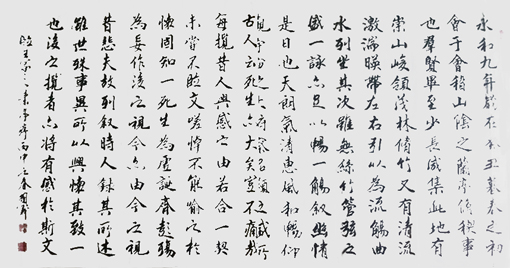 永和九年歲在癸丑暮春之初
會于會稽山陰之蘭亭修禊事
也群賢畢至少長咸集此地有
崇山峻領茂林脩竹又有清流
激湍暎帶左右引以為流觴曲
水列坐其次雖無絲竹管弦之
盛一詠亦足以暢一觴敘幽情
是日也天朗氣清惠風和暢仰
古人云死生亦大矣豈不痛哉
每攬昔人興感之由若合一契
未嘗不臨文嗟悼不能喻之於
懷固知一死生為虛誕齊彭殤
為妄作後之視今亦由今之視
昔悲夫故列敘時人錄其所述
雖世殊事異所以興懷其致一
也後之攬者亦將有感於斯文
臨王羲之蘭亭序丙申之春